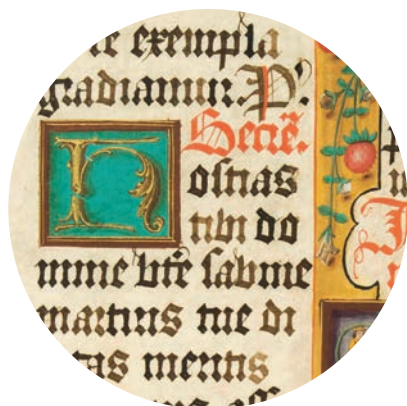 exempla
gradiamur. P.
Secrẽ.
Hostias
tibi do
mine bt̃e sabine
martiris tue di
tas meritis